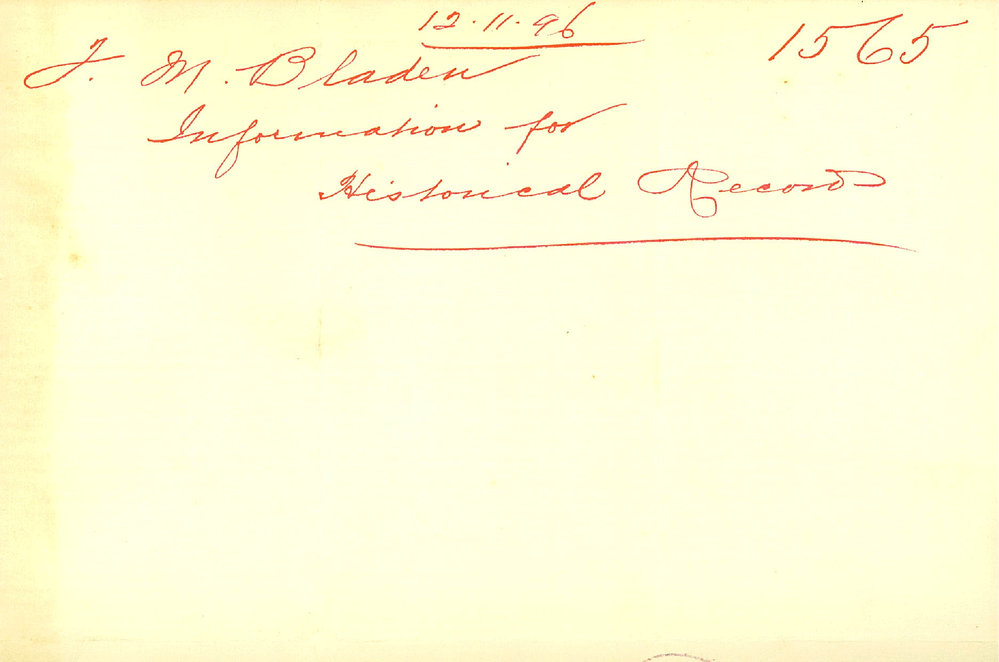 12.11.96
1565
F. M. Bladen
Information for
Historical Records